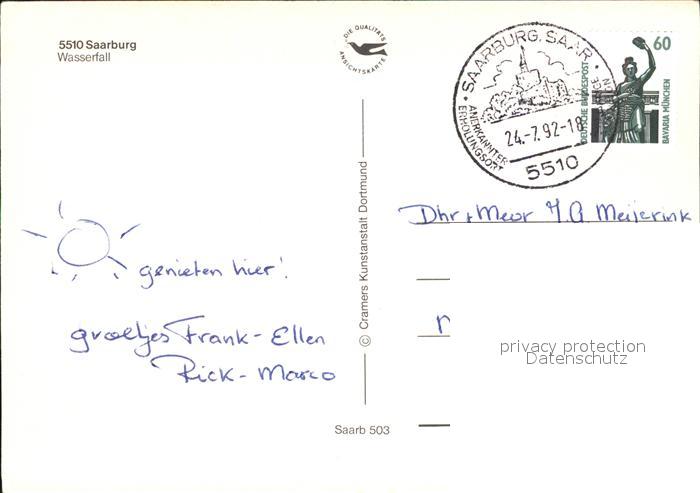 5510 Saarburg
Wasserfall
DIE QUALITÄTS
ANSICHTSKARTE
SAARBURG, SAAR
ANERKANNTER
ERHOLUNGSORT
24.-7.92-18
5510
60
DEUTSCHE BUNDESPOST
BAVARIA MÜNCHEN
Dhr + Mevr J.A. Meijerink
genieten hier!
groetjes Frank - Ellen
Rick - Marco
© Cramers Kunstanstalt Dortmund
privacy protection
Datenschutz
Saarb 503